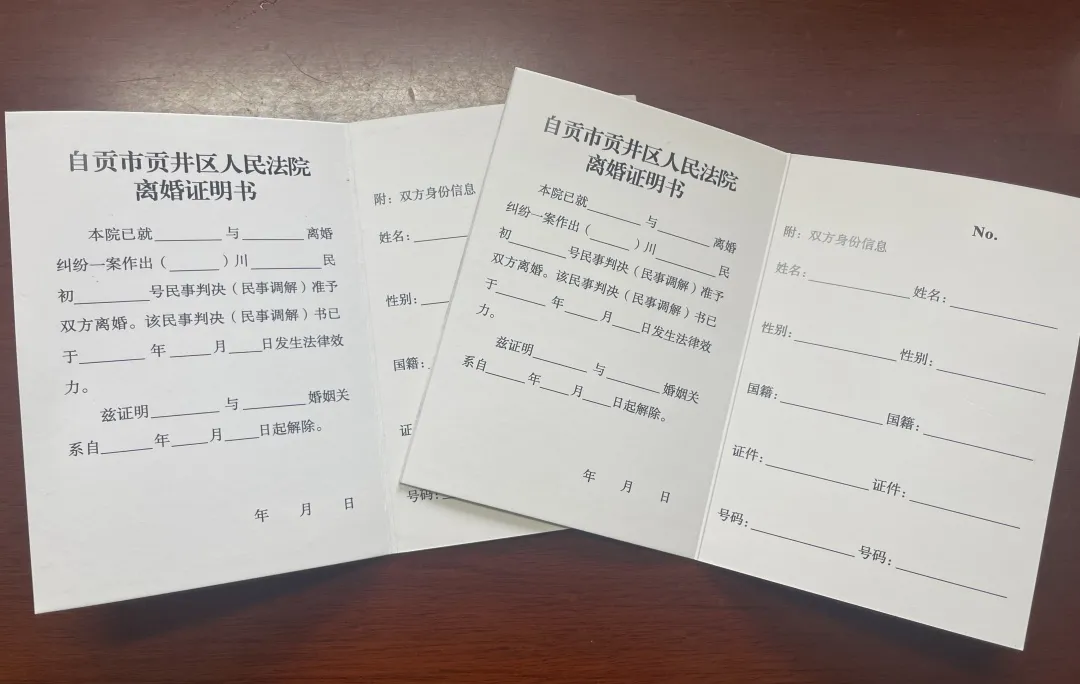 自贡市贡井区人民法院
离婚证明书
本院已就______与______离婚
纠纷一案作出（____）川______民
初______号民事判决（民事调解）准予
双方离婚。该民事判决（民事调解）书已
于______年____月____日发生法律效
力。
兹证明______与______婚姻关
系自____年____月____日起解除。
年 月 日
附：双方身份信息
姓名：____
性别：____
国籍：
证
号码：
自贡市贡井区人民法院
离婚证明书
本院已就______与______离婚
纠纷一案作出（____）川______民
初______号民事判决（民事调解）准予
双方离婚。该民事判决（民事调解）书已
于______年____月____日发生法律效
力。
兹证明______与______婚姻关
系自____年____月____日起解除。
年 月 日
No.
附：双方身份信息
姓名：__________ 姓名：__________
性别：__________ 性别：__________
国籍：__________ 国籍：__________
证件：__________ 证件：__________
号码：__________ 号码：__________